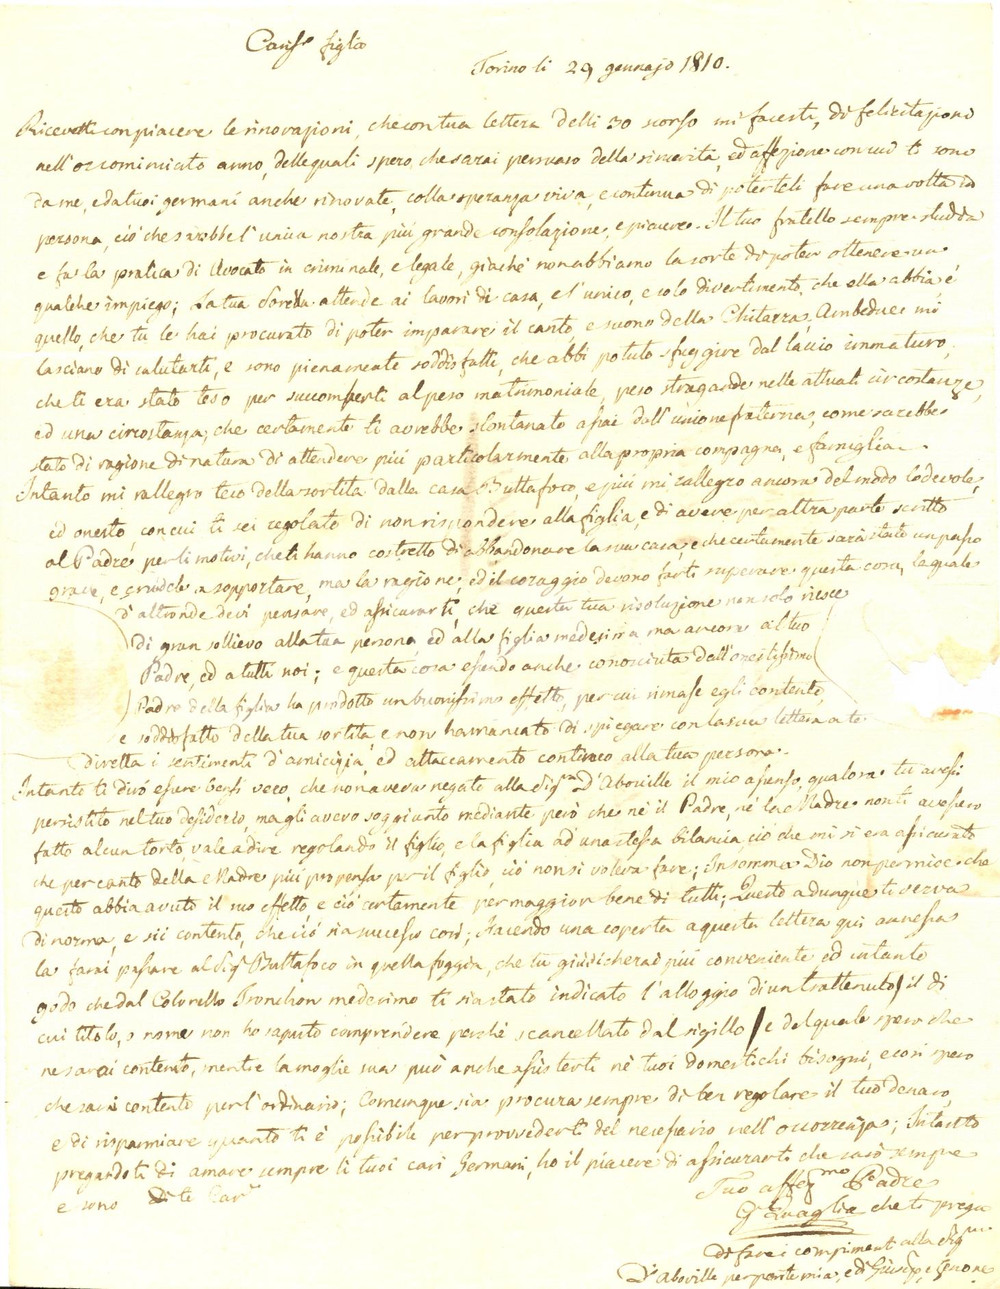 Cariss.o figlio
Torino li 29 gennajo 1810.
Ricevetti con piacere le rinovazioni, che con tua lettera delli 30 scorso mi facesti, di felicitazioni
nell'or cominciato anno, delle quali spero, che sarai persuaso della sincerità, ed affezione con cui ti sono
da me, e da tuoi germani anche rinovate, colla speranza viva, e continua di potertele fare una volta in
persona, ciò che sarebbe l'unica nostra più grande consolazione, e piacere. Il tuo fratello sempre studia
e fa la pratica di Avocato in criminale, e legale, giachè non abbiamo la sorte di poter ottenere un
qualche impiego; La tua Sorella attende ai lavori di casa, e l'unico, e solo divertimento, che ella abbia è
quello, che tu le hai procurato di poter imparare il canto e suono della Chitarra, Ambedue mi
lasciano di salutarti, e sono pienamente soddisfatti, che abbi potuto sfuggire dal laccio immaturo,
che ti era stato teso per succomberti al peso matrimoniale, peso stragande nelle attuali circostanze,
ed una circostanza, che certamente ti avrebbe slontanato assai dall'unione fraterna, come sarebbe
stato di ragione di natura di attendere più particolarmente alla propria compagna, e famiglia.
Intanto mi rallegro teco della sortita dalla casa Buttafoco, e più mi rallegro ancora del modo lodevole,
ed onesto, con cui ti sei regolato di non rispondere alla figlia, e di avere per altra parte scritto
al Padre, per li motivi, che ti hanno costretto di abbandonare la sua casa, e che certamente sarà stato un passo
grave, e crudele a sopportare, ma la ragione, ed il coraggio devono farti superare questa cosa, la quale
d'altronde devi pensare, ed assicurarti, che questa tua risoluzione non solo riesce
di gran sollievo alla tua persona, ed alla figlia medesima ma ancora al tuo
Padre, ed a tutti noi; e questa cosa essendo anche conosciuta dall'onestissimo
Padre della figlia ha prodotto un buonissimo effetto, per cui rimase egli contento,
e soddisfatto della tua sortita, e non ha mancato di spiegare con la sua lettera a te
diretta i sentimenti d'amicizia, ed attaccamento continuo alla tua persona.
Intanto ti dirò essere bensì vero, che non aveva negato alla Sig.ra D'Aboville il mio assenso, qualora tu avessi
persistito nel tuo desiderio, ma gli avevo soggiunto mediante però che nè il Padre, nè la Madre non ti avessero
fatto alcun torto, vale a dire regolando il figlio, e la figlia ad una stessa bilancia, ciò che mi si era assicurato
che per canto della Madre più propensa per il figlio, ciò non si voleva fare; Insomma Dio non permise che
questo abbia avuto il suo effetto e ciò certamente per maggior bene di tutti; Questo adunque ti serva
di norma, e sii contento, che ciò sia successo così; Facendo una coperta a questa lettera qui annessa
la farai passare al Sig.r Buttafoco in quella foggia, che tu giudicherai più conveniente ed intanto
godo che dal Colonello Tronchon medesimo ti sia stato indicato l'alloggio di un trattenuto / il di
cui titolo, o nome non ho saputo comprendere perchè scancellato dal sigillo / e del quale spero che
ne sarai contento, mentre la moglie sua può anche assisterti nè tuoi domestichi bisogni, e così spero
che sarai contento per l'ordinario; Comunque sia procura sempre di ben regolare il tuo denaro,
e di risparmiare quanto ti è possibile per provvederti del necessario nell'occorrenza; Intanto
pregandoti di amare sempre li tuoi cari Germani, ho il piacere di assicurarti che sarò sempre
e sono di te Car.o
Tuo affez.mo Padre
G. Quaglia che ti prega
di fare i complimenti alla Sig.ra
D'Aboville per parte mia, e di